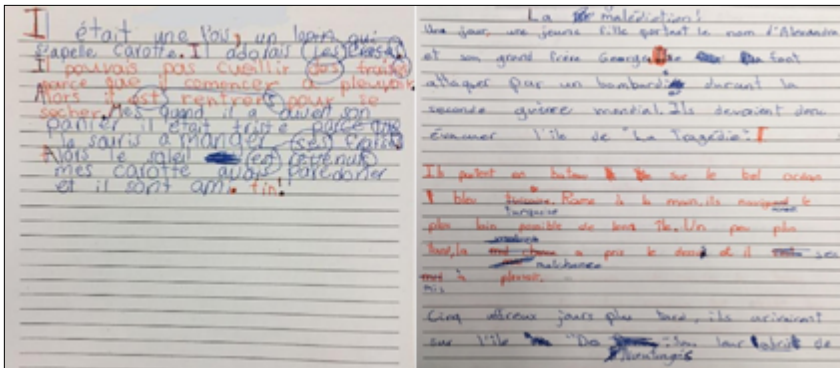 Il était une fois, un lapin qui
s'apelle Carotte. Il adorais (les
Il pouvais pas cueillir des frais
parce que il comencer à pleuvoir.
Alors il est rentrers pour se
sécher. Mes quand il a ouvert son
panier il était triste parce que
la souris a manger ses frais
Alors le soleil est revenus
mes carotte avais pardoner
et il sont ami. fin!
La malédiction!
Une jour, une jeune fille portant le nom d'Alexandra
et son grand frère George se font
attaquer par un bombardi durant la
seconde guèrre mondial. Ils devaient donc
évacuer l'île de "La Tragédie".
Ils partent en bateau sur le bel océan
bleu turquoise. Rame à la main, ils navigent le
plus loin possible de leur île. Un peu plus
tard, la malchance a pris le dessu et il ses
mis à pleuvoir.
Cinq affreux jours plus tard, ils arrivèrent
sur l'île "Des Naufragés" leur abrit de